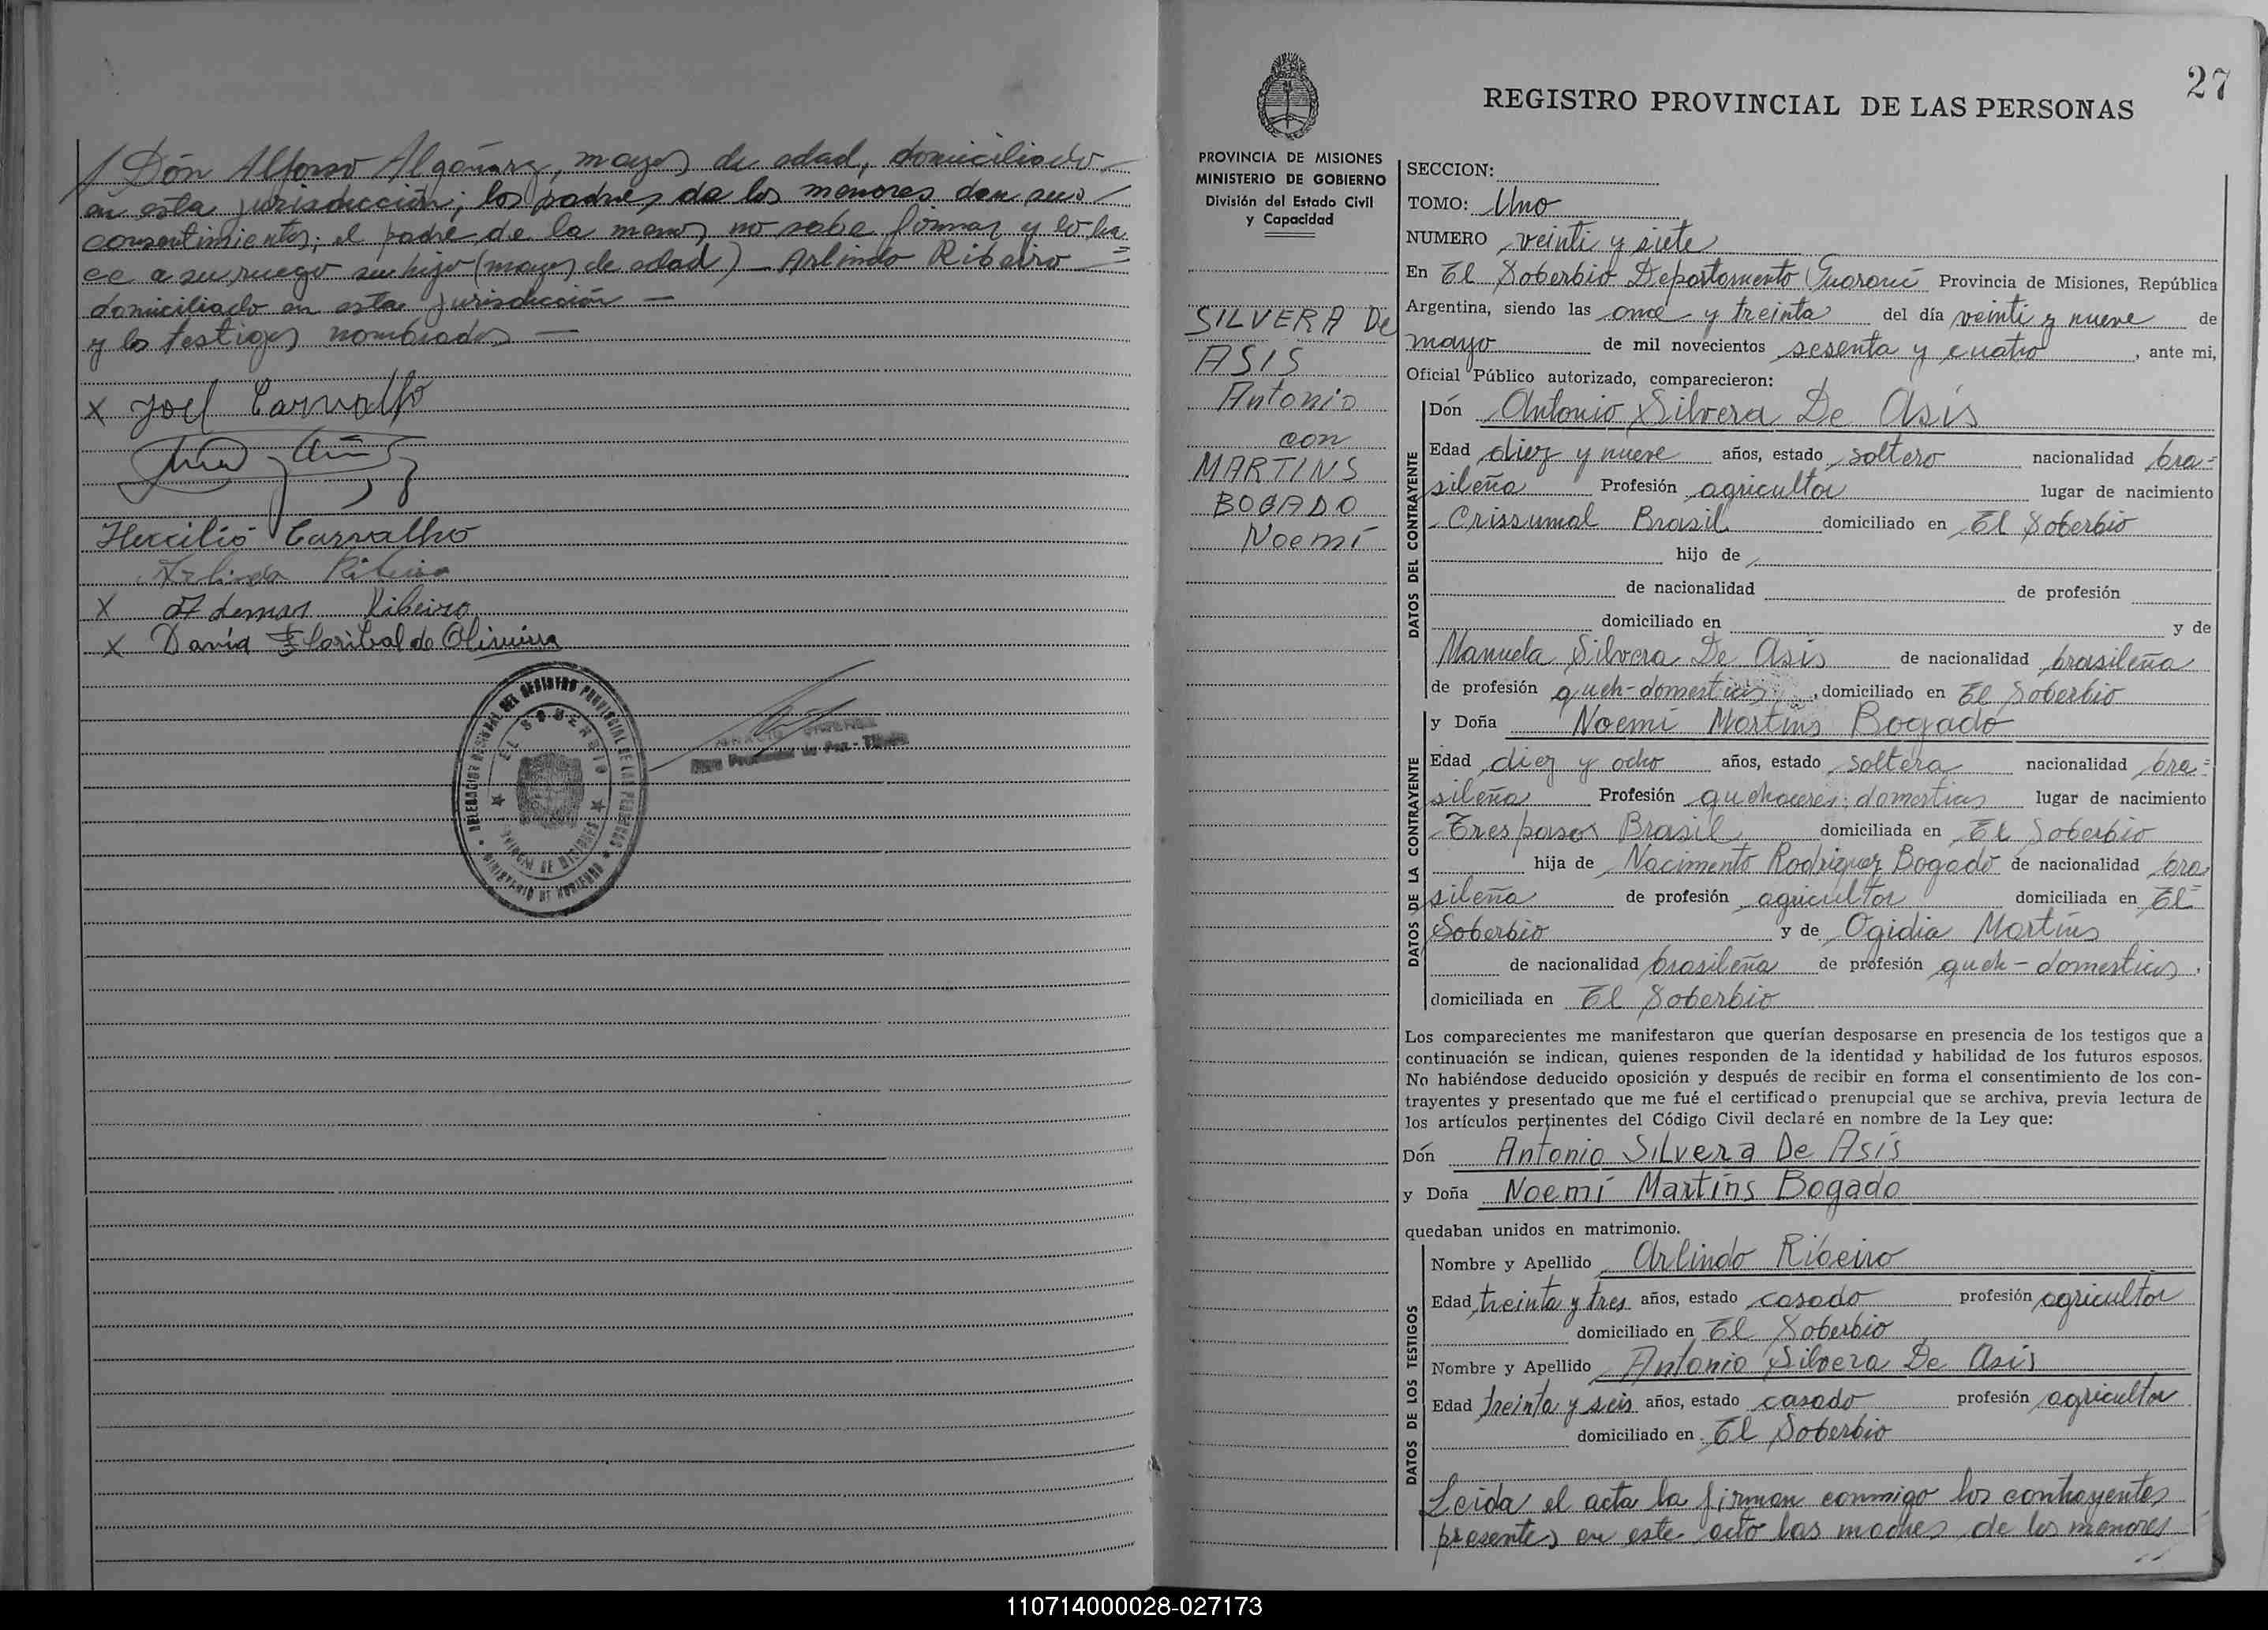 Dón Alfonso Algañaraz, mayor de edad, domiciliado
en esta jurisdicción; los padres de los menores dan su
consentimiento; el padre de la menor no sabe firmar y lo ha-
ce a su ruego su hijo (mayor de edad) - Arlindo Ribeiro =
domiciliado en esta jurisdicción —
y los testigos nombrados —
x Joel Carvalho
Hercilio Carvalho
Arlindo Ribeiro
X Ademar Ribeiro
X David Floribal de Oliveira
DELEGACION REGIONAL DEL REGISTRO PROVINCIAL DE LAS PERSONAS
EL SOBERBIO
MINISTERIO DE GOBIERNO
27
REGISTRO PROVINCIAL DE LAS PERSONAS
PROVINCIA DE MISIONES
MINISTERIO DE GOBIERNO
División del Estado Civil
y Capacidad
SILVERA De
ASIS
Antonio
con
MARTINS
BOGADO
Noemí
SECCION:
TOMO: Uno
NUMERO veinti y siete
En El Soberbio Departamento Guaraní Provincia de Misiones, República
Argentina, siendo las once y treinta del día veinti y nueve de
mayo de mil novecientos sesenta y cuatro, ante mi,
Oficial Público autorizado, comparecieron:
DATOS DEL CONTRAYENTE
Dón Antonio Silvera De Asís
Edad diez y nueve años, estado soltero nacionalidad bra=
sileña Profesión agricultor lugar de nacimiento
Crissumal Brasil domiciliado en El Soberbio
hijo de
de nacionalidad de profesión
domiciliado en y de
Manuela Silvera De Asis de nacionalidad brasileña
de profesión queh-domesticos, domiciliado en El Soberbio
DATOS DE LA CONTRAYENTE
y Doña Noemí Martins Bogado
Edad diez y ocho años, estado soltera nacionalidad bra=
sileña Profesión quehaceres domesticos lugar de nacimiento
Tres pasos Brasil domiciliada en El Soberbio
hija de Nacimento Rodriguez Bogado de nacionalidad bra=
sileña de profesión agricultor domiciliada en El
Soberbio y de Ogidia Martins
de nacionalidad brasileña de profesión queh-domesticos,
domiciliada en El Soberbio
Los comparecientes me manifestaron que querían desposarse en presencia de los testigos que a
continuación se indican, quienes responden de la identidad y habilidad de los futuros esposos.
No habiéndose deducido oposición y después de recibir en forma el consentimiento de los con-
trayentes y presentado que me fué el certificado prenupcial que se archiva, previa lectura de
los artículos pertinentes del Código Civil declaré en nombre de la Ley que:
Dón Antonio Silvera De Asís
y Doña Noemí Martins Bogado
quedaban unidos en matrimonio.
DATOS DE LOS TESTIGOS
Nombre y Apellido Arlindo Ribeiro
Edad treinta y tres años, estado casado profesión agricultor
domiciliado en El Soberbio
Nombre y Apellido Antonio Silvera De Asis
Edad treinta y seis años, estado casado profesión agricultor
domiciliado en El Soberbio
Leida el acta la firman conmigo los contrayentes
presentes en este acto las madres de los menores
110714000028-027173